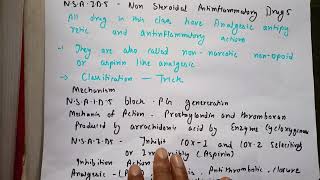 N.S.A.I.D.S - Non Steroidal Antiinflammatory Drugs
All drug in this class have Analgesic antipy
retic and Antiinflammatory actions
→ They are also called non-narcotic non-opoid
or aspirin like analgesic.
→ Classification — Trick
Mechanism
N.S.A.I.D.S block - PG genereration
Mechanism of Action - Prostaglandin and thromboxan
Produced by arrachidonic acid by Enzyme Cycloxygenas
N.S.A.I.DS - Inhibit COX-1 and COX-2 Selectively
or Irreversibly (Aspirin)
Inhibition Action
Antithrombotic, closure
Analgesic -